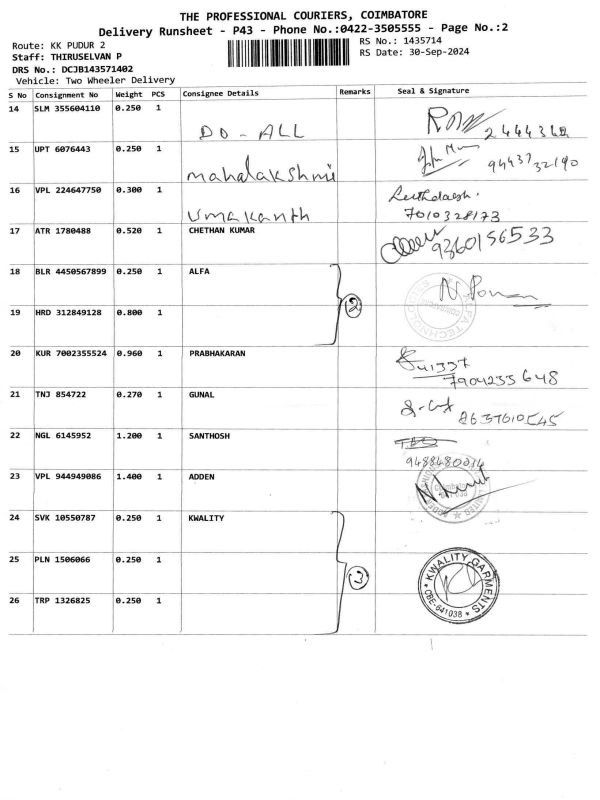 THE PROFESSIONAL COURIERS, COIMBATORE
Delivery Runsheet - P43 - Phone No.:0422-3505555 - Page No.:2
Route: KK PUDUR 2
RS No.: 1435714
Staff: THIRUSELVAN P
RS Date: 30-Sep-2024
DRS No.: DCJB143571402
Vehicle: Two Wheeler Delivery
S No Consignment No Weight PCS Consignee Details Remarks Seal & Signature
14 SLM 355604110 0.250 1 DO-ALL
15 UPT 6076443 0.250 1 mahalakshmi
16 VPL 224647750 0.300 1 Umakanth 7010328173
17 ATR 1780488 0.520 1 CHETHAN KUMAR 9360156533
18 BLR 4450567899 0.250 1 ALFA
2
19 HRD 312849128 0.800 1
20 KUR 7002355524 0.960 1 PRABHAKARAN 7904233648
21 TNJ 854722 0.270 1 GUNAL
22 NGL 6145952 1.200 1 SANTHOSH
23 VPL 944949086 1.400 1 ADDEN
24 SVK 10550787 0.250 1 KWALITY
25 PLN 1506066 0.250 1 3 KWALITY GARMENTS CBE-641038
26 TRP 1326825 0.250 1